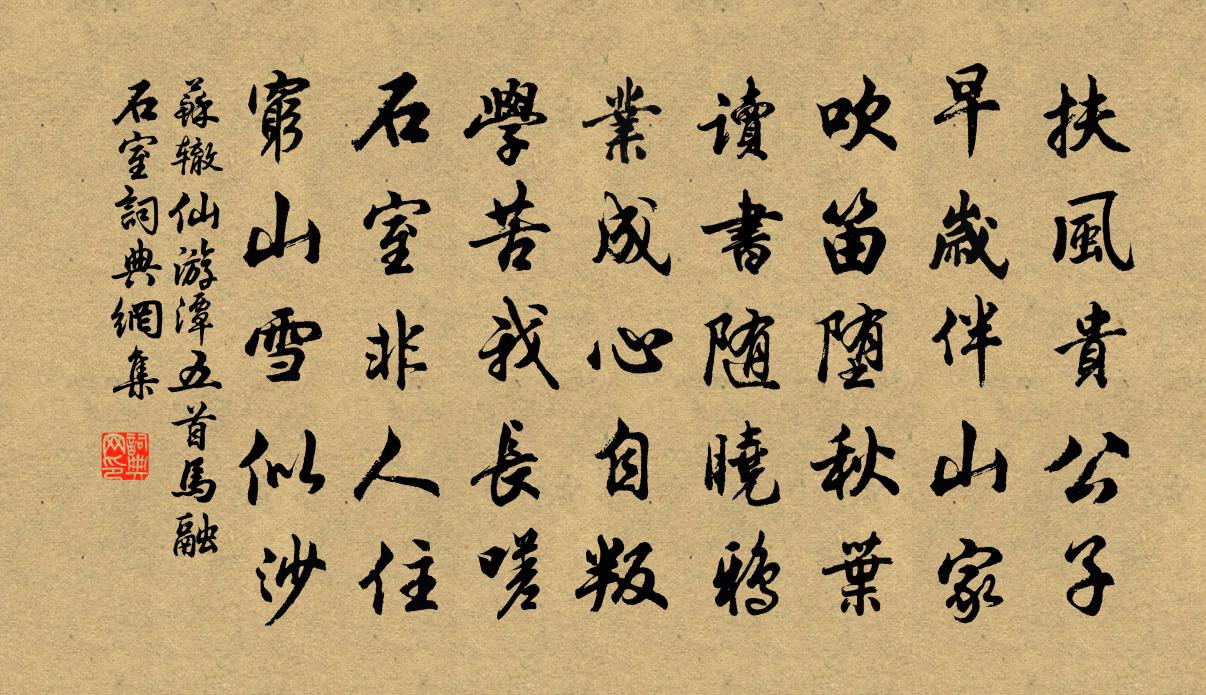 扶風貴公子
早歲伴山家
吹笛墮秋葉
讀書隨曉鴉
業成心自叛
學苦我長嗟
石室非人住
窮山雪似沙
蘇辙仙游潭五首馬融
石室詞典網集
詞典
网印